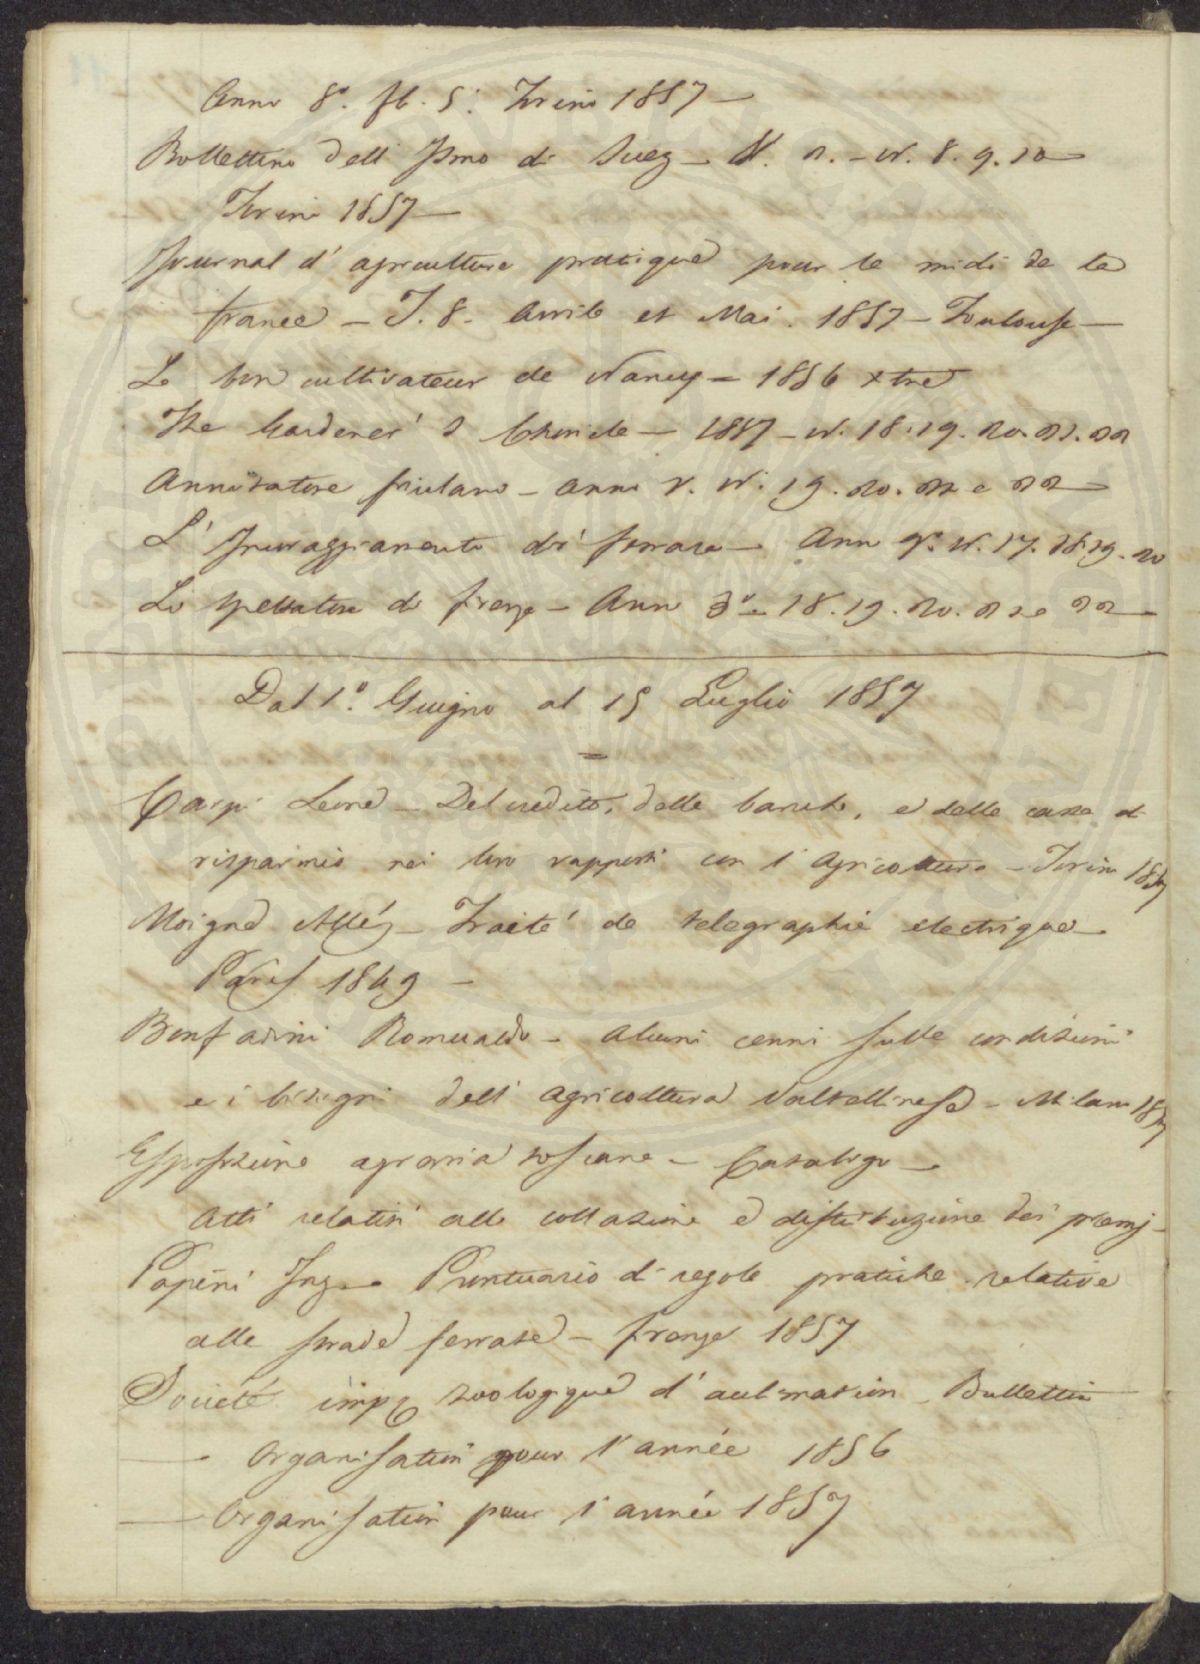 Anno 8º. fl. 5: Torino 1857 —
Bollettino dell' Ismo di Suez — N. 2. — N. 8. 9. 10 —
Torino 1857 —
Journal d' agriculture pratique pour le midi de la
france — T. 8. Avrile et Mai. 1857 — Toulouse —
Le bon cultivateur de Nancy = 1856
The Gardener' s Chronicle — 1857 — N. 18. 19. 20. 21. 22
Annotatore friulano — anno V. N. 19. 20. 21 e 22 —
L' Incoraggiamento di ferrara — Ann N. 17. 18. 19. 20
Lo Spettatore di firenze — Anno 3º 18. 19. 20. 21 e 22 —
Dal 1º. Giugno al 15 Luglio 1857
=
Carpi Leone — Del credito, delle banche, e delle casse di
risparmio nei loro rapporti con l' Agricoltura — Torino 1857
Moigno Abbé — Traité de telegraphie electrique —
Paris 1849 —
Bonfadini Romualdo — Alcuni cenni sulle condizioni
e i bisogni dell' agricoltura Valtellinese — Milano 1857
Esposizione agraria toscana — Catalogo —
Atti relativi alla collazione e distribuzione dei premj —
Papini Ing. — Prontuario di regole pratiche relative
alle strade ferrate — firenze 1857
Société imp. zoologique d' aclimation — Bullettin
— Organisation pour l' année 1856
— Organisation pour l' année 1857